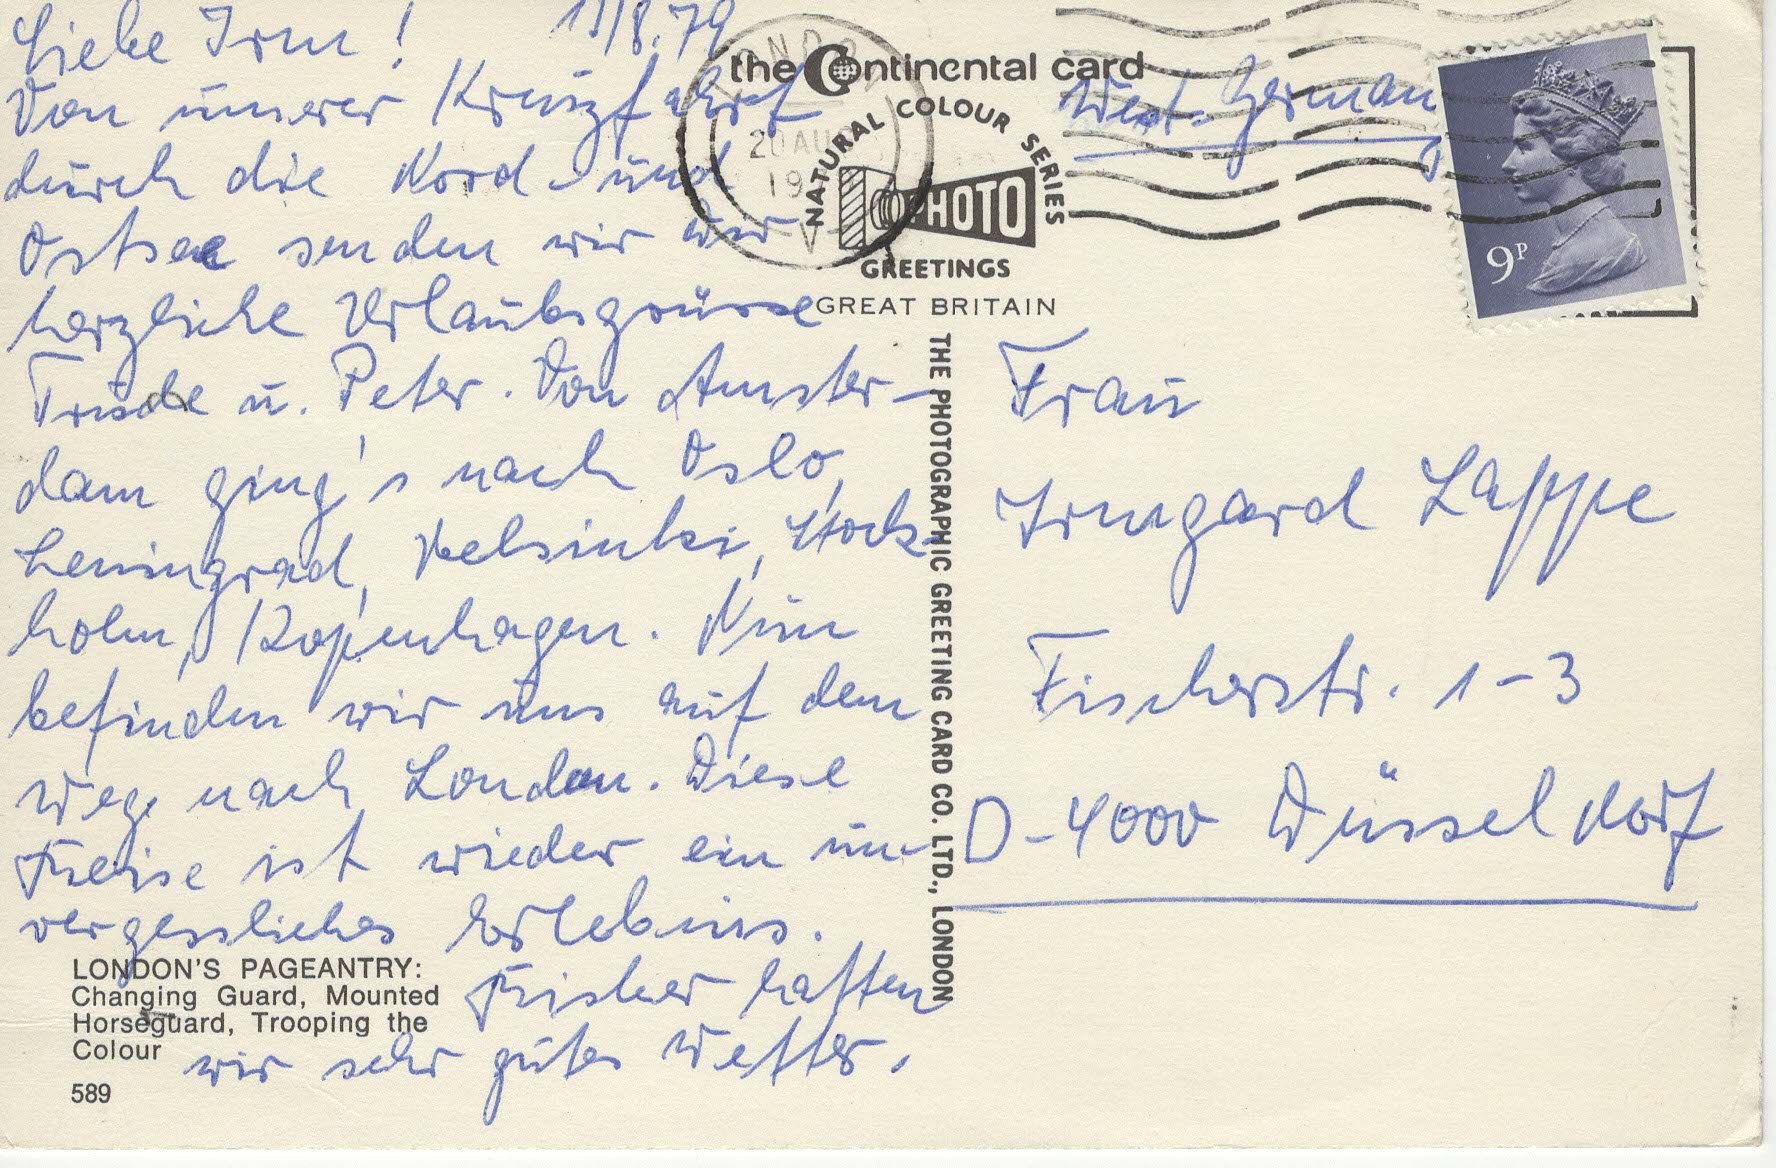 Liebe Irm!
Von unserer Kreuzfahrt
durch die Nord- und
Ostsee senden wir Dir
herzliche Urlaubsgrüsse
u. Peter. Von Amster-
dam ging's nach Oslo,
Leningrad, Helsinki, Stock-
holm, Kopenhagen. Nun
befinden wir uns auf dem
Wege nach London. Diese
Reise ist wieder ein un-
vergessliches Erlebnis.
Bisher hatten
wir sehr gutes Wetter.
LONDON'S PAGEANTRY:
Changing Guard, Mounted
Horseguard, Trooping the
Colour
589
the Continental card
NATURAL COLOUR SERIES
PHOTO
GREETINGS
GREAT BRITAIN
THE PHOTOGRAPHIC GREETING CARD CO. LTD., LONDON
LONDON
20 AUG
19
West-Germany
9P
Frau
Irmgard Lappe
Fischerstr. 1-3
D-4000 Düsseldorf